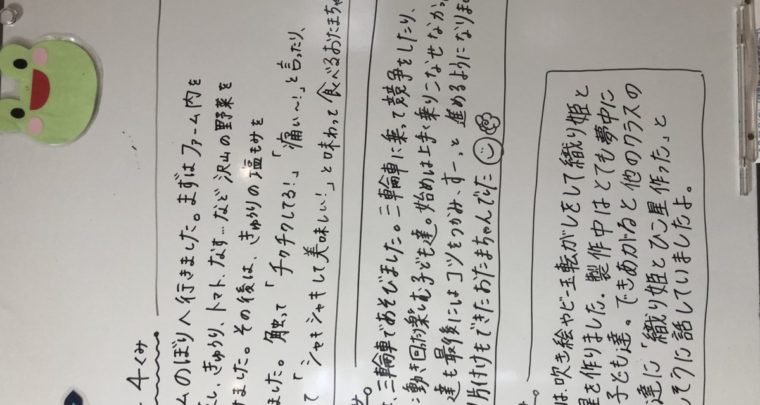 4くみ
ムのぼりへ行きました。まずはファーム内を
し、きゅうり、トマト、なす…など沢山の野菜を
けました。その後は、きゅうりの塩もみを
ました。触って「チクチクしてる!」「痛い~!」と言ったり、
て「シャキシャキして美味しい!」と味わって食べるおたまちゃ
、三輪車であそびました。三輪車に乗って競争をしたり、
に動き回たり楽しむ子ども達。始めは上手く乗りこなせなかっ
達も最後にはコツをつかみ、すーっと進めるようになりま
片付けもできたおたまちゃんでした
は、吹き絵やビー玉転がしをして織り姫と
星を作りました。製作中はとても夢中に
子ども達。でもあがると他のクラスの
達に「織り姫とひこ星作った」と
そうに話していましたよ。